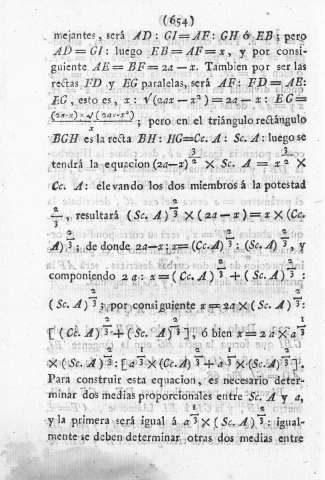 (654)
mejantes, será AD: GI=AF: GH ó EB; pero
AD=GI: luego EB=AF=x, y por consi-
guiente AE=BF=2a-x. Tambien por ser las
rectas FD y EG paralelas, será AF: FD=AE:
EG, esto es, x: √(2ax-x²)=2a-x: EG=
(2a-x)×√(2ax-x²)/x; pero en el triángulo rectángulo
BGH es la recta BH: HG=Cc. A: Sc. A: luego se
tendrá la equacion (2a-x)^(3/2) × Sc. A = x^(3/2) ×
Cc. A: elevando los dos miembros á la potestad
2/3, resultará (Sc. A)^(2/3) × (2a-x)=x×(Cc.
A)^(2/3); de donde 2a-x: x=(Cc. A)^(2/3): (Sc. A)^(2/3), y
componiendo 2a: x=(Cc. A)^(2/3)+(Sc. A)^(2/3):
(Sc. A)^(2/3); por consiguiente x=2a×(Sc. A)^(2/3):
[(Cc. A)^(2/3)+(Sc. A)^(2/3)], ó bien x=2a×a^(1/3)
×(Sc. A)^(2/3): [a^(1/3)×(Cc. A)^(2/3)+a^(1/3)×(Sc. A)^(2/3)].
Para construir esta equacion, es necesario deter-
minar dos medias proporcionales entre Sc. A y a,
y la primera será igual á a^(1/3)×(Sc. A)^(2/3): igual-
mente se deben determinar otras dos medias entre